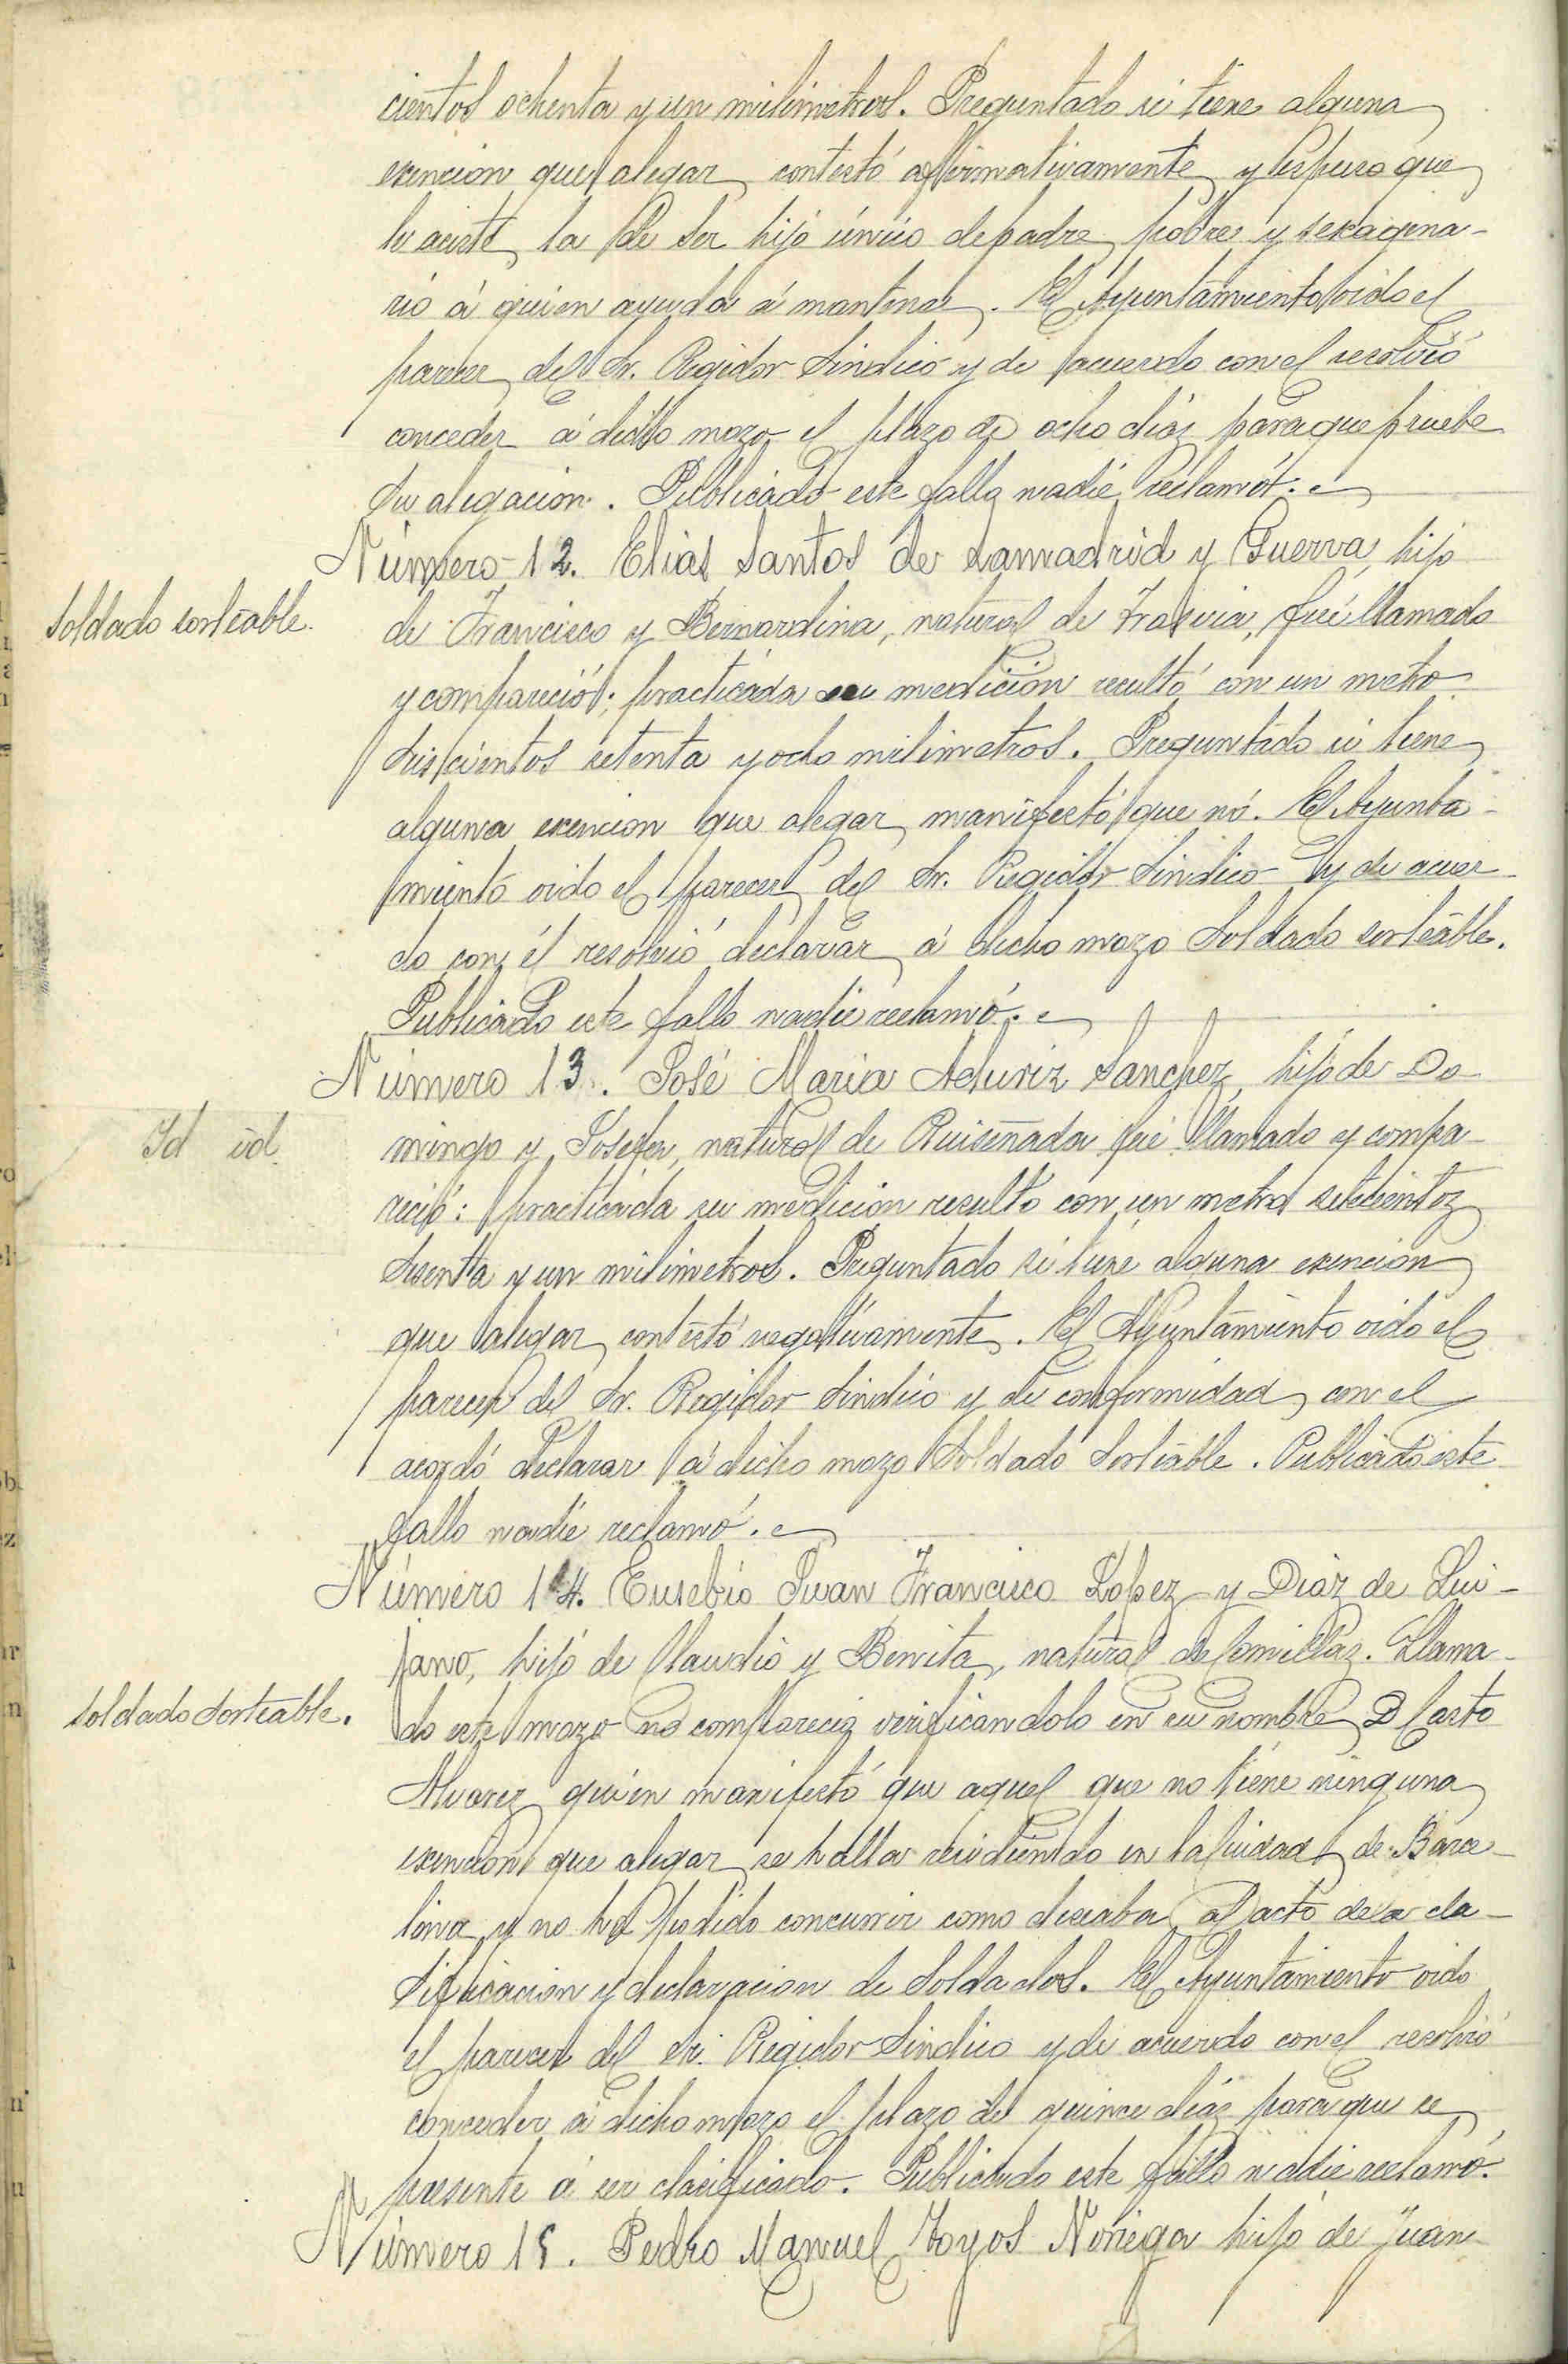 cientos ochenta y un milimetros. Preguntado si tiene alguna
exencion que alegar contestó afirmativamente y expuso que
le asiste la de ser hijo único de padre pobre y sexagena-
rio á quien ayuda á mantener. El Ayuntamiento oido el
parecer del Sr. Regidor Sindico y de acuerdo con el resolvió
conceder á dicho mozo el plazo de ocho dias para que pruebe
su alegacion. Publicado este fallo nadie reclamó.
Número 12. Elias Santos de Lamadrid y Guerra, hijo
Soldado sorteable.
de Francisco y Bernardina, natural de Trasvia, fué llamado
y compareció; practicada su medición resultó con un metro
seiscientos setenta y ocho milimetros. Preguntado si tiene
alguna exencion que alegar manifestó que nó. El Ayunta-
miento oido el parecer del Sr. Regidor Sindico y de acuer-
do con él resolvió declarar á dicho mozo Soldado sorteable.
Publicado este fallo nadie reclamó.
Número 13. José Maria Aduriz Sanchez, hijo de Do-
Id id
mingo y Josefa, natural de Ruiseñada fué llamado y compa-
reció: practicada su medición resultó con un metro setecientos
sesenta y un milimetros. Preguntado si tiene alguna exención
que alegar contestó negativamente. El Ayuntamiento oido el
parecer del Sr. Regidor Sindico y de conformidad con el
acordó declarar á dicho mozo Soldado Sorteable. Publicado este
fallo nadie reclamó.
Número 14. Eusebio Juan Francisco Lopez y Diaz de Qui-
jano, hijo de Claudio y Benita, natural de Comillas. Llama-
Soldado Sorteable.
do este mozo no compareció verificandolo en su nombre D Casto
Alvarez quien manifestó que aquel que no tiene ninguna
exencion que alegar se halla residiendo en la ciudad de Barce-
lona y no ha podido concurrir como deseaba al acto de la cla-
sificacion y declaracion de Soldados. El Ayuntamiento oido
el parecer del Sr. Regidor Sindico y de acuerdo con el resolvió
conceder á dicho mozo el plazo de quince dias para que se
presente á ser clasificado. Publicado este fallo nadie reclamó.
Número 15. Pedro Manuel Hoyos Noriega hijo de Juan